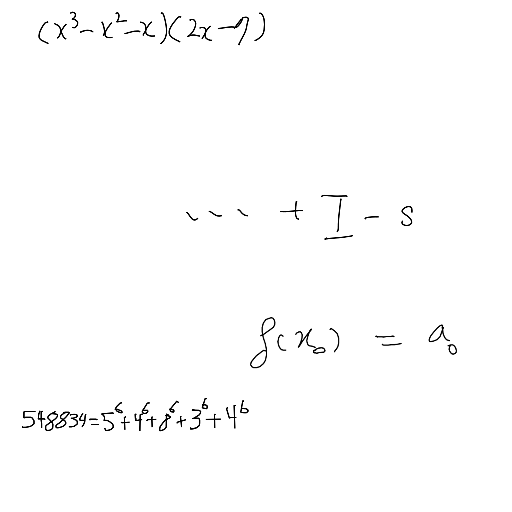 (x³-x²-x)(2x-9)
... + I - s
f(x₀) = a₀
548834=5⁶+4⁶+8⁶+3⁶+4⁶